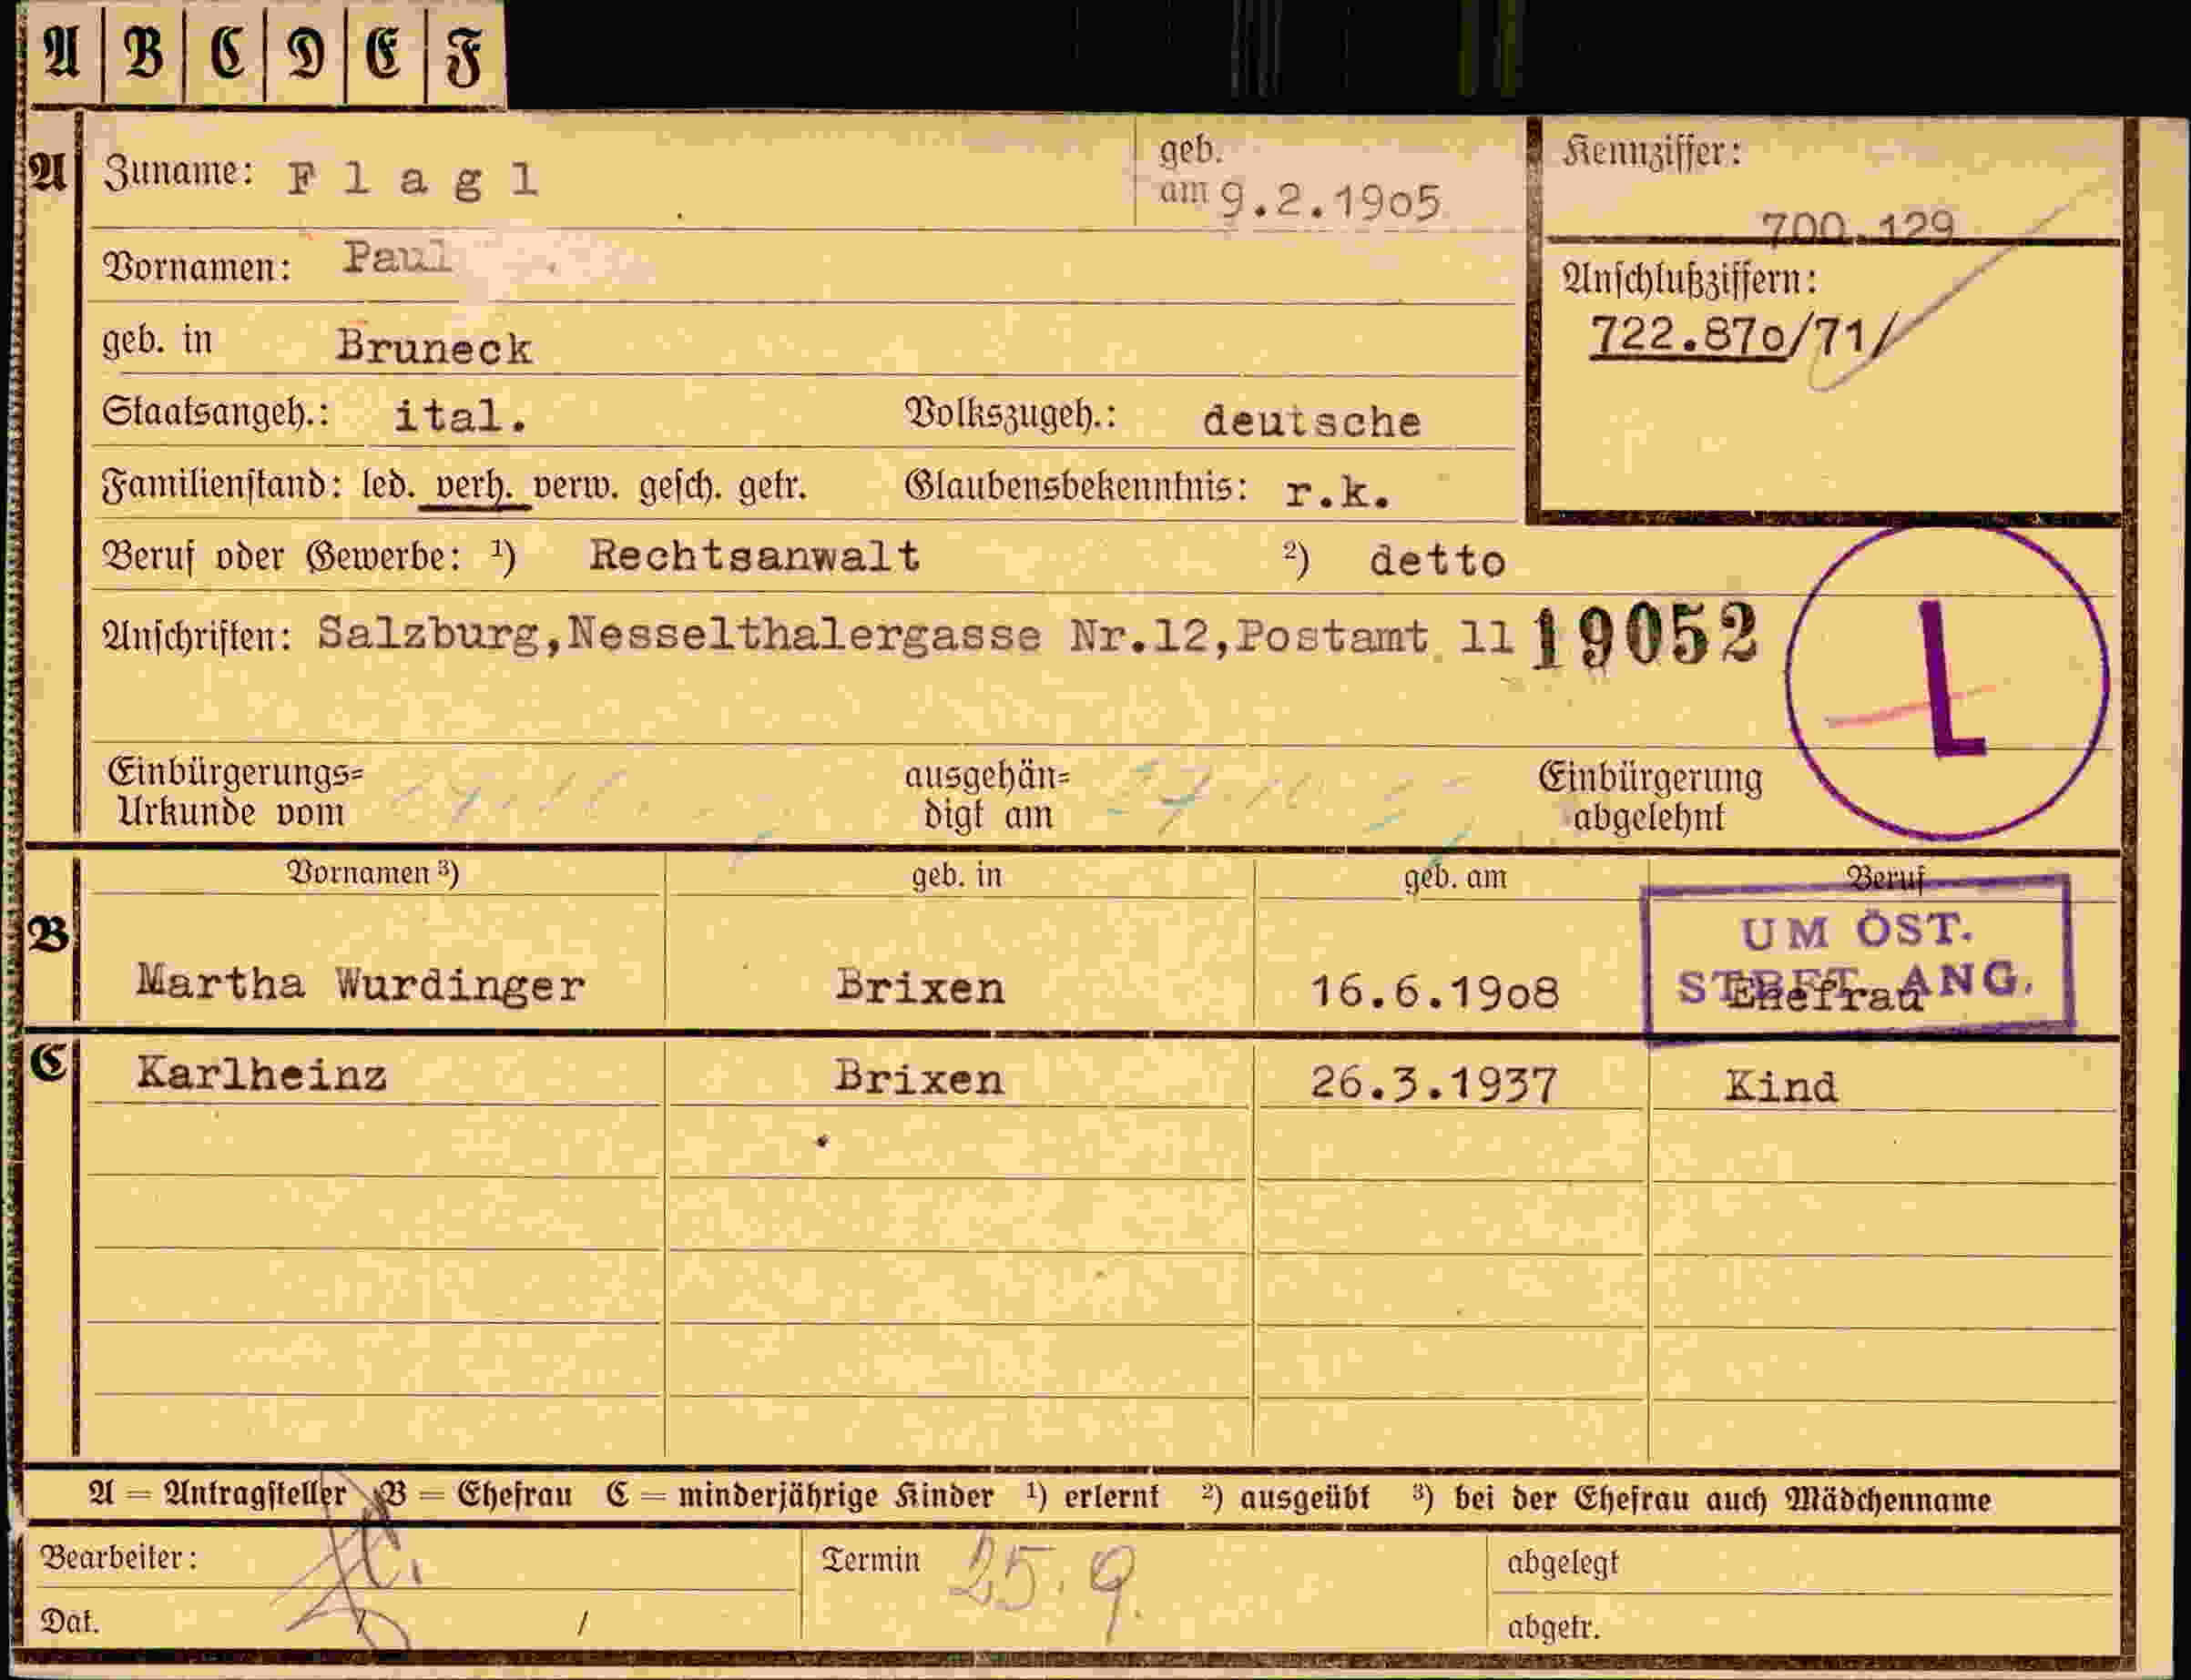 A B C D E F
A Zuname: Flagl geb. am 9.2.1905 Kennziffer: 700.129
Vornamen: Paul Anschlußziffern:
geb. in Bruneck 722.870/71/
Staatsangeh.: ital. Volkszugeh.: deutsche
Familienstand: led. verh. verw. gesch. getr. Glaubensbekenntnis: r.k.
Beruf oder Gewerbe: ¹) Rechtsanwalt ²) detto
Anschriften: Salzburg,Nesselthalergasse Nr.12,Postamt 11 19052
L
Einbürgerungs= ausgehän= Einbürgerung
Urkunde vom digt am abgelehnt
Vornamen ³) geb. in geb. am Beruf
B UM ÖST.
Martha Wurdinger Brixen 16.6.1908 Ehefrau
ANG.
C Karlheinz Brixen 26.3.1937 Kind
A = Antragsteller B = Ehefrau C = minderjährige Kinder ¹) erlernt ²) ausgeübt ³) bei der Ehefrau auch Mädchenname
Bearbeiter: Termin 25.9. abgelegt
Dat. / / abgetr.